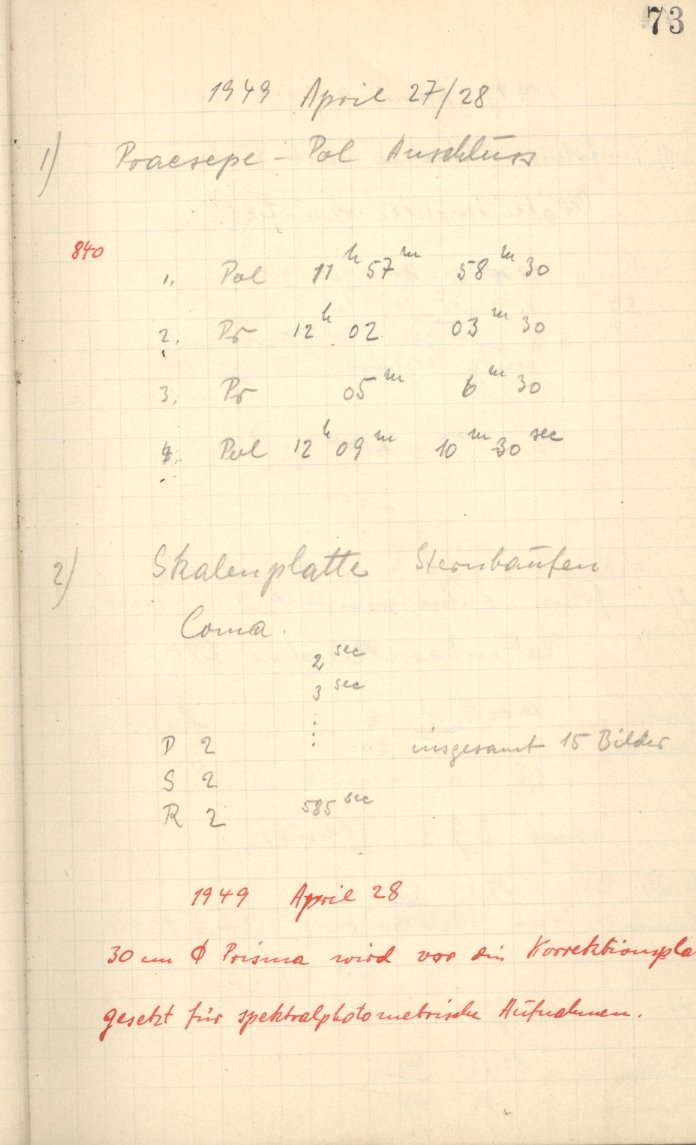 73
1949 April 27/28
1) Praesepe - Pol Anschluss
840
1. Pol 11h 57m 58m 30
2. Pr 12h 02 03m 30
3. Pr 05m 6m 30
4. Pol 12h 09m 10m 30sec
2) Skalenplatte Sternhaufen
Coma.
2sec
3sec
⋮
P 2 insgesamt 15 Bilder
S 2
R 2 585sec
1949 April 28
30 cm Φ Prisma wird vor die Korrektionspla
gesetzt für spektralphotometrische Aufnahmen.